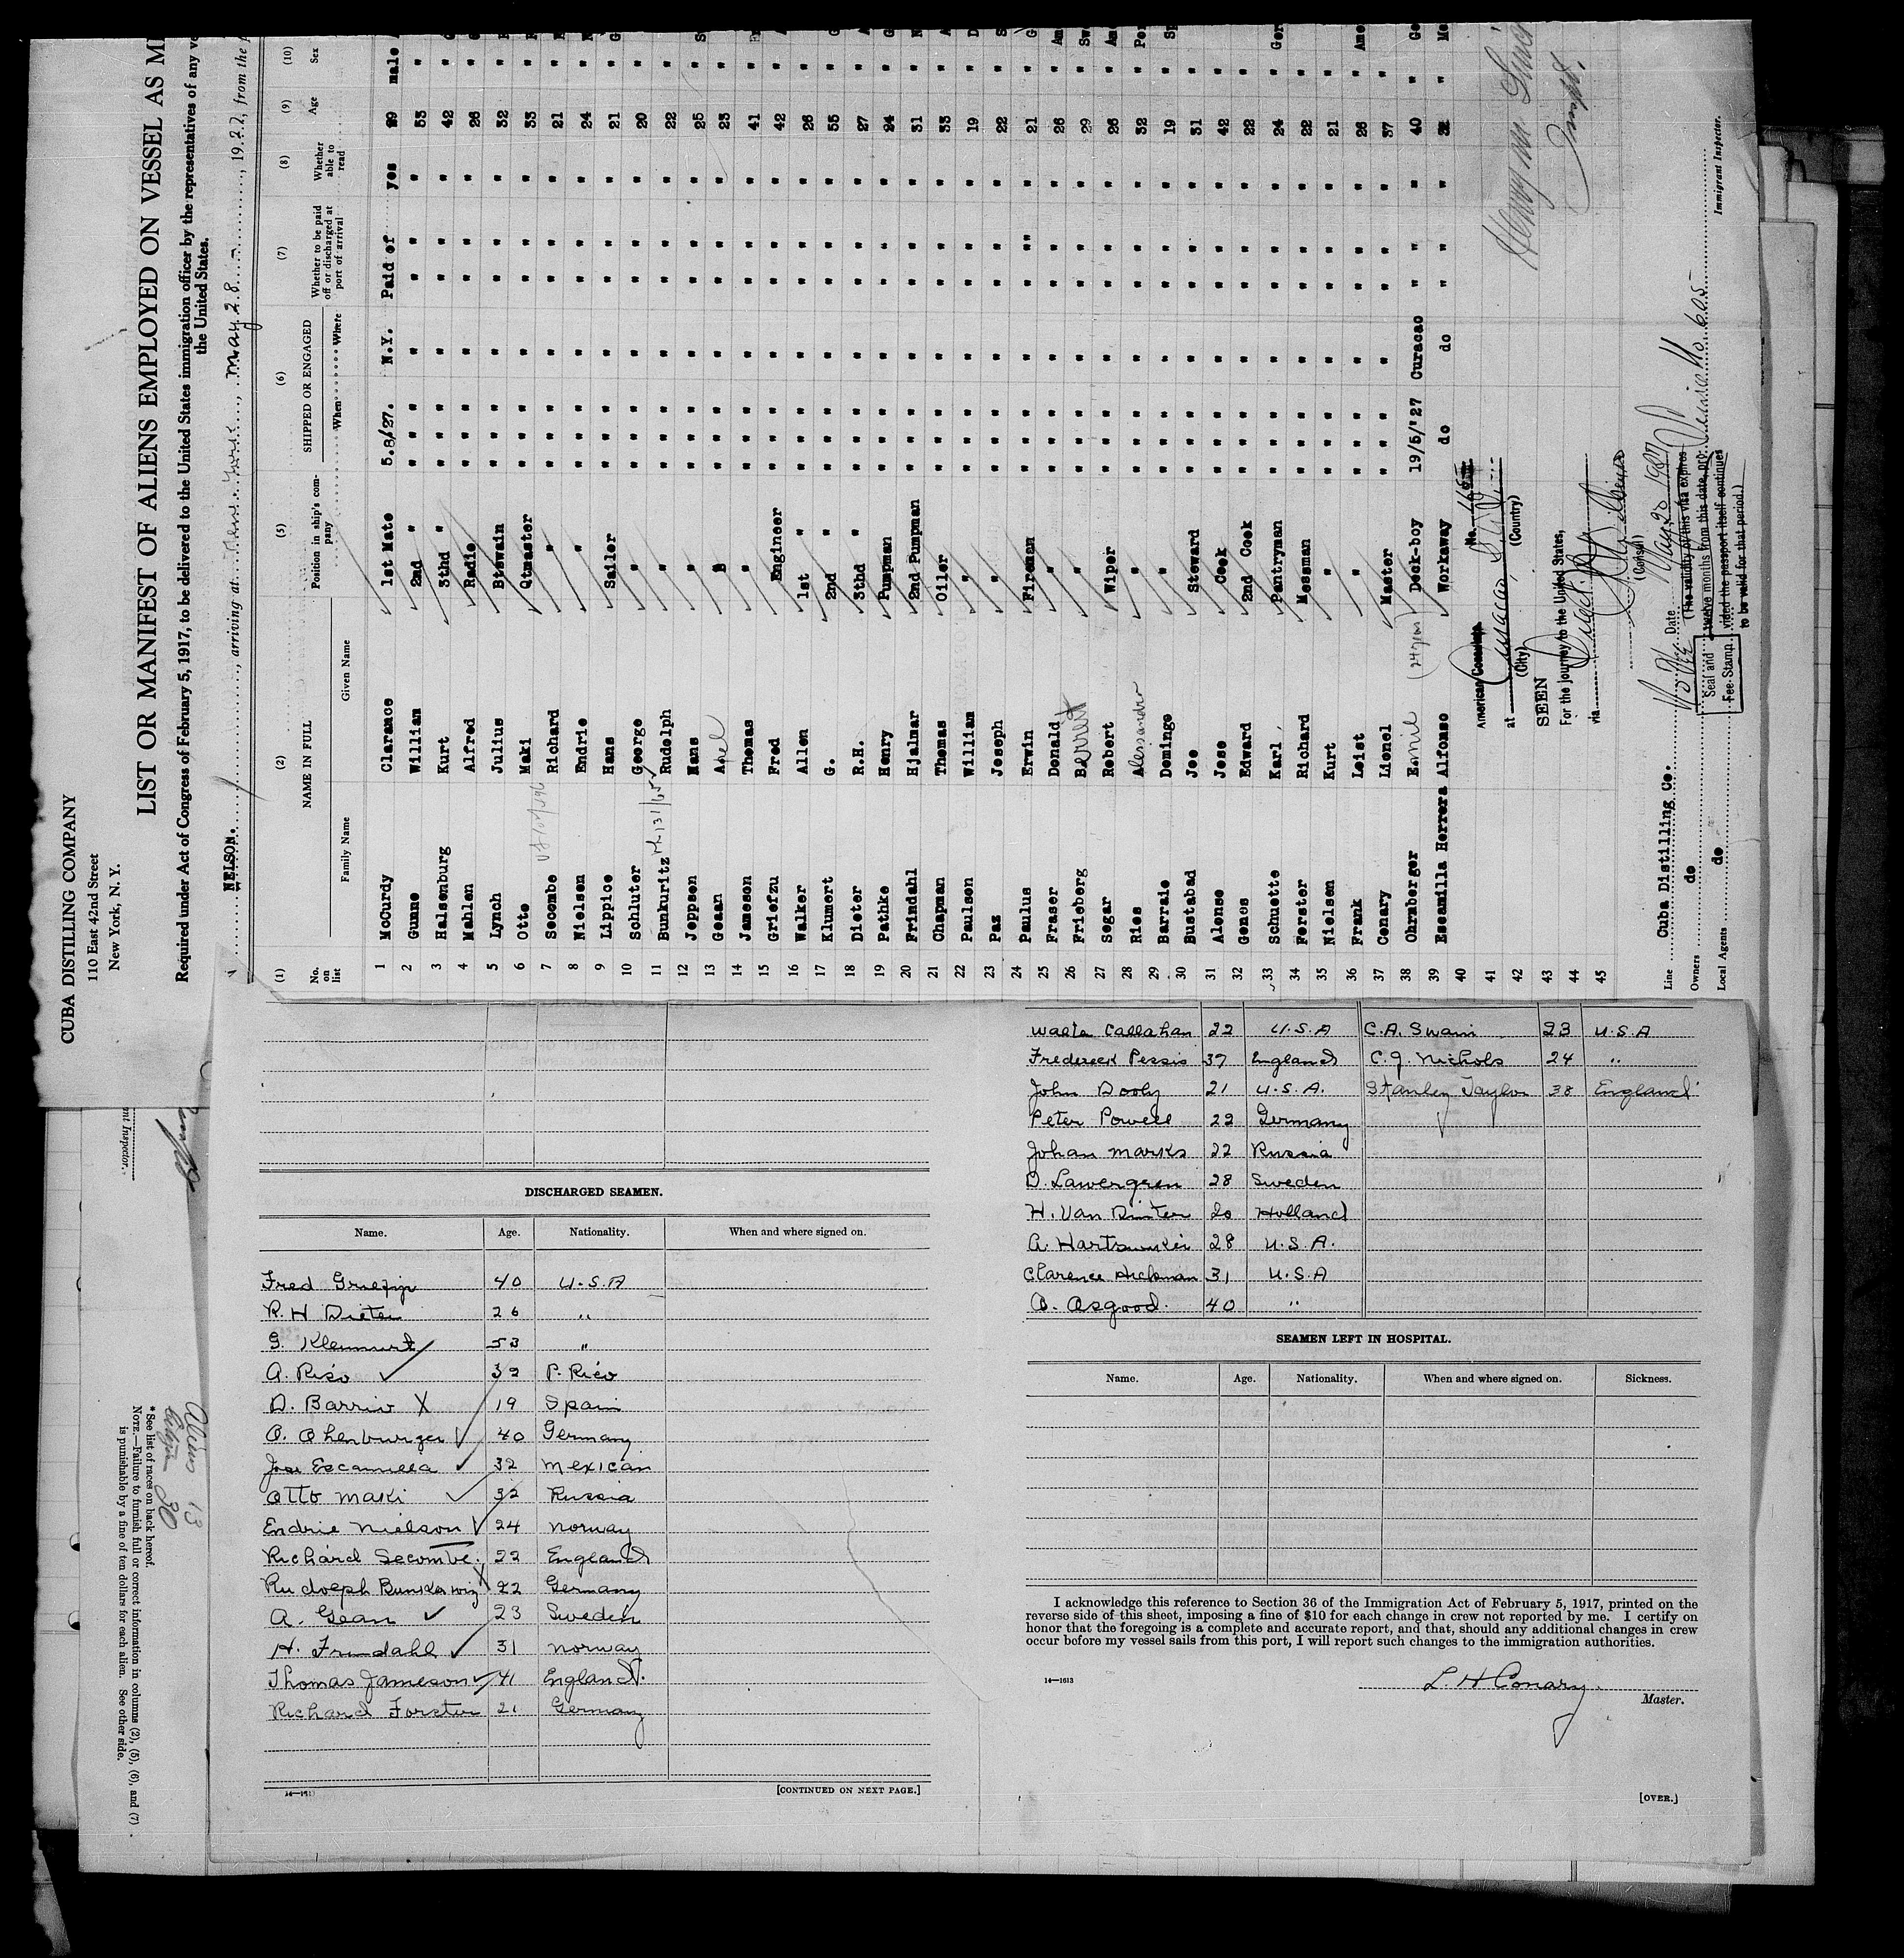 CUBA DISTILLING COMPANY
110 East 42nd Street
New York, N. Y.
LIST OR MANIFEST OF ALIENS EMPLOYED ON VESSEL AS
Required under Act of Congress of February 5, 1917, to be delivered to the United States immigration officer by the representatives of any
the United States.
NELSON. , arriving at New York, May 28, 1927, from the
(1) (2) (5) (6) (7) (8) (9) (10)
No. on list NAME IN FULL Position in ship's company SHIPPED OR ENGAGED Whether to be paid off or discharged at port of arrival Whether able to read Age Sex
Family Name Given Name When Where
1 McCurdy Claramce 1st Mate 5.8/27. N.Y. Paid of yes 29 male
2 Gunne William 2nd " " " " " " " " 53 "
3 Halsenburg Kurt 3thd " " " " " " " " 42 "
4 Mahlen Alfred Radio " " " " " " " 26 "
5 Lynch Julius Btswain " " " " " " " 32 "
6 Otto Maki Qtmaster " " " " " " " 33 "
7 Secombe Richard " " " " " " " " 21 "
8 Nielsen Endrie " " " " " " " " 24 "
9 Lippice Hans Sailer " " " " " " " 21 "
10 Schluter George " " " " " " " " 20 "
11 Bunkuritz Rudelph " " " " " " " " 22 "
12 Jeppsen Hans " " " " " " " " 25 "
13 Geaan Axel " " " " " " " 23 "
14 Jameson Thomas " " " " " " " " 41 "
15 Griefzu Fred Engineer " " " " " " " 42 "
16 Walker Allen 1st " " " " " " " " 26 "
17 Klumert G. 2nd " " " " " " " " 55 "
18 Dieter R.H. 3thd " " " " " " " " 27 "
19 Pathke Henry Pumpman " " " " " " " 24 "
20 Frindahl Hjalmar 2nd Pumpman " " " " " " " 31 "
21 Chapman Thomas Oiler " " " " " " " 33 "
22 Paulsen William " " " " " " " " 19 "
23 Paz Joseph " " " " " " " " 22 "
24 Paulus Erwin Fireman " " " " "" " 21 "
25 Fraser Donald " " " " " " " " 26 "
26 Frieberg Berrett " " " " " " " " 29 "
27 Segar Robert Wiper " " " " " " " 26 "
28 Ries Alessandro " " " " " " " " 32 "
29 Barraie Domingo " " " " " " " " 19 "
30 Bustabad Joe Steward " " " " " " " 31 "
31 Alonso Jose Cook " " " " " " " 42 "
32 Genos Edward 2nd Cook " " " " " " " 22 "
33 Schuette Karl Pantryman " " " " " " " 24 "
34 Ferster Richard Messman " " " " " " " 22 "
35 Nielsen Kurt " " " " " " " " 21 "
36 Frank Leist " " " " " " " " 26 "
37 Conary Lionel Master " " " " " " " 37 "
38 Ohrnberger Emil (24 years) Deck-boy 19/5/'27 Curacao " " " 40 "
39 Escamilla Herrera Alfonso Workaway do do " " " "
40
41
42
43
44
45
American Consulate No.
at Curacao,
(City) (Country)
SEEN
For the journey to the United States,
via
(Consul)
No Fee Date May 20 1927
Seal and Fee Stamp
(The validity of this visa expires twelve months from this date, provided the passport itself continues to be valid for that period.)
Immigrant Inspector.
Line Cuba Distilling Co.
Owners do
Local Agents do
DISCHARGED SEAMEN.
Name. Age. Nationality. When and where signed on.
Fred Griefzu 40 U.S.A
R. H Dieter 26 "
G. Klemmert 53 "
A. Riso 32 P. Rico
D. Barrio X 19 Spain
O. Ohenburger 40 Germany
Jose Escamilla 32 Mexican
Otto Maki 32 Russia
Endrie Nielson 24 Norway
Richard Secombe. 22 England
Rudolph 22 Germany
A. Gean 23 Sweden
H. Frindahl 31 Norway
Thomas Jameson 41 England.
Richard Forster 21 Germany
[CONTINUED ON NEXT PAGE.]
Callahan 22 U.S.A C.A. Swain 23 U.S.A
Frederick Pessis 37 England C.J. Nichols 24 "
John Dooly 21 U.S.A. Stanley Taylor 38 England
Peter Powell 22 Germany
Johan Marks 22 Russia
D. Lawergren 28 Sweden
H. Van Dinter 20 Holland
A. 28 U.S.A.
Clarence Hickman 31 U.S.A
O. Osgood. 40 "
SEAMEN LEFT IN HOSPITAL.
Name. Age. Nationality. When and where signed on. Sickness.
I acknowledge this reference to Section 36 of the Immigration Act of February 5, 1917, printed on the
reverse side of this sheet, imposing a fine of $10 for each change in crew not reported by me. I certify on
honor that the foregoing is a complete and accurate report, and that, should any additional changes in crew
occur before my vessel sails from this port, I will report such changes to the immigration authorities.
14—1613
L. H Conary
Master.
[OVER.]
Inspector.
Aliens 13
30
* See list of races on back hereof.
NOTE.—Failure to furnish full or correct information in columns (2), (5), (6), and (7)
is punishable by a fine of ten dollars for each alien. See other side.